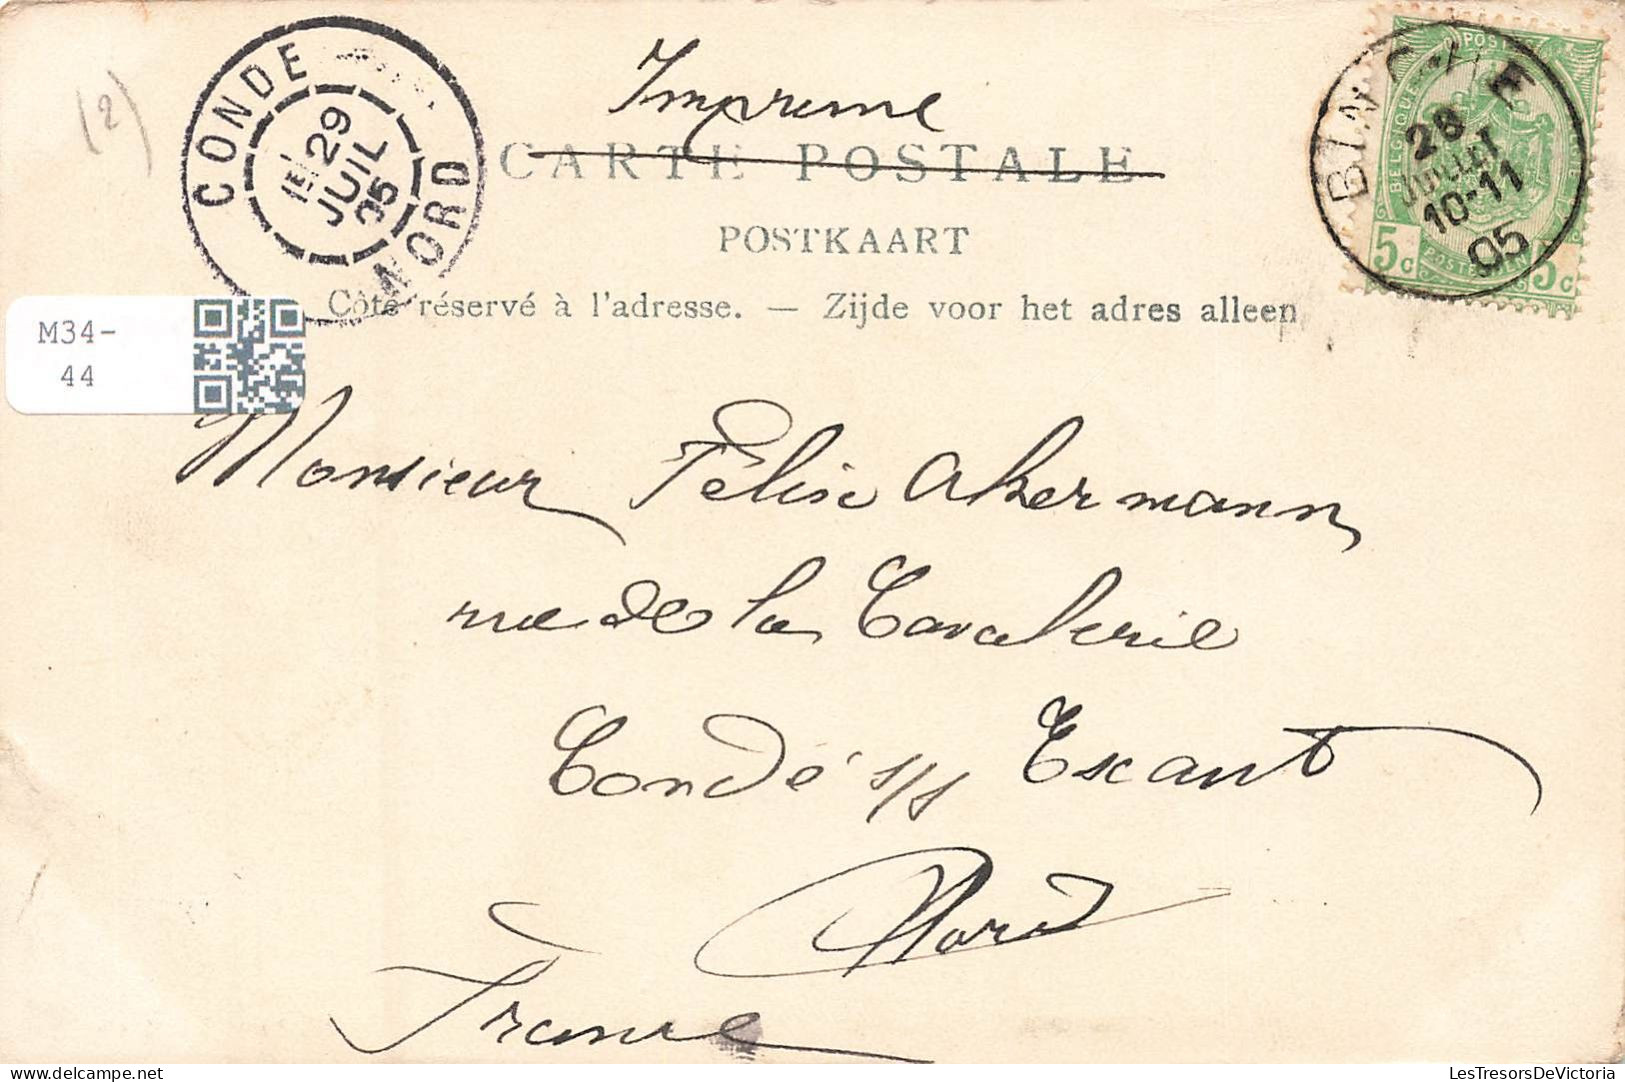 Imprimé
CARTE POSTALE
POSTKAART
Côté réservé à l'adresse. — Zijde voor het adres alleen
(2)
CONDE
NORD
29
JUIL
05
BINCHE
28
JUILLET
10-11
05
BELGIQUE
POSTERIJEN
5c 5c
M34-
44
Monsieur Félix Akermann
rue de la Cavalerie
Condé s/s Escaut
Nord
France
delcampe.net
LesTresorsDeVictoria